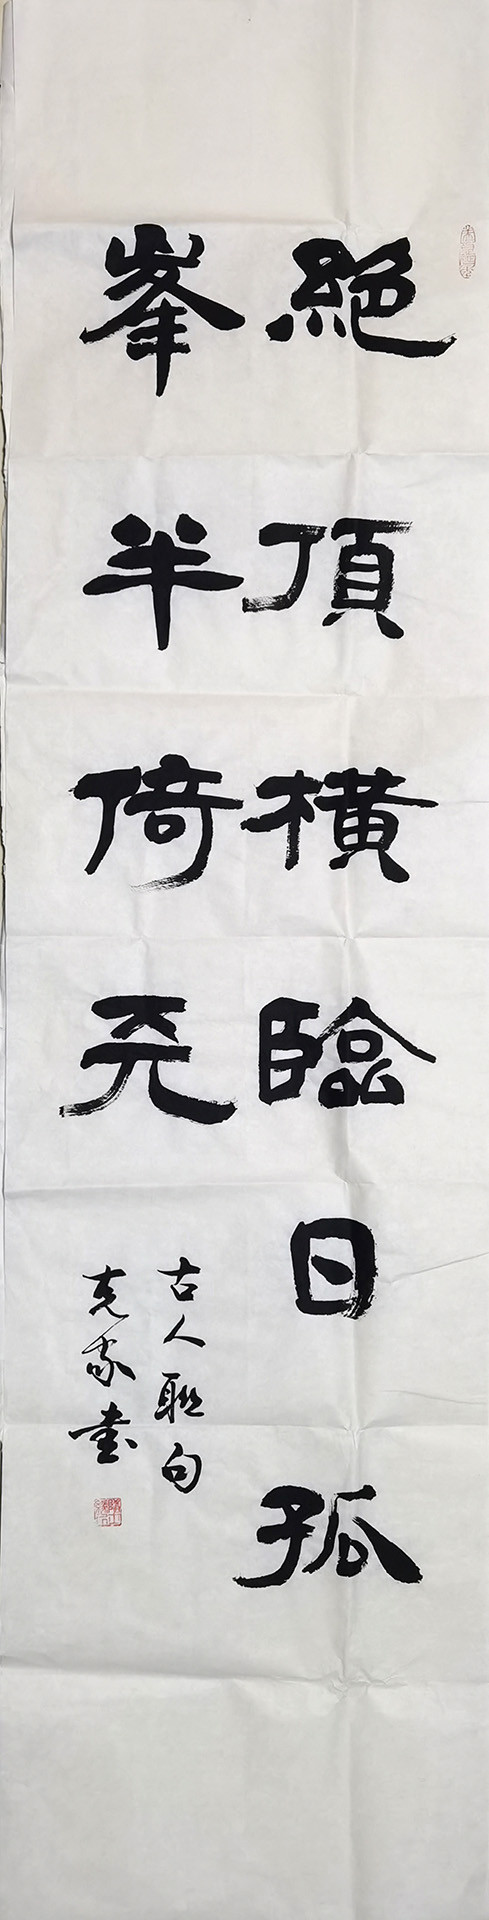 絕頂橫臨日孤
峯半倚天
古人聯句
克家書